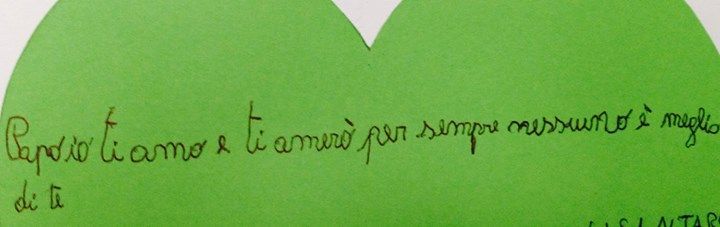 Papo io ti amo e ti amerò per sempre nessuno è meglio
di te